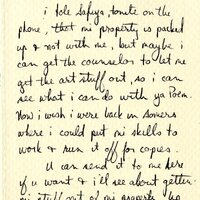 i tole Safiya, tonite on the
phone, that mi property is packed
up & not with me, but maybe i
can get the counselor to let me
get the art stuff out, so i can
see what i can do with ya Poem.
Now i wish i were back in Somers
where i could put mi skills to
work & run it off for copies.
U can send it to me here
if u want & i'll see about gettin
mi stuff out of mi property